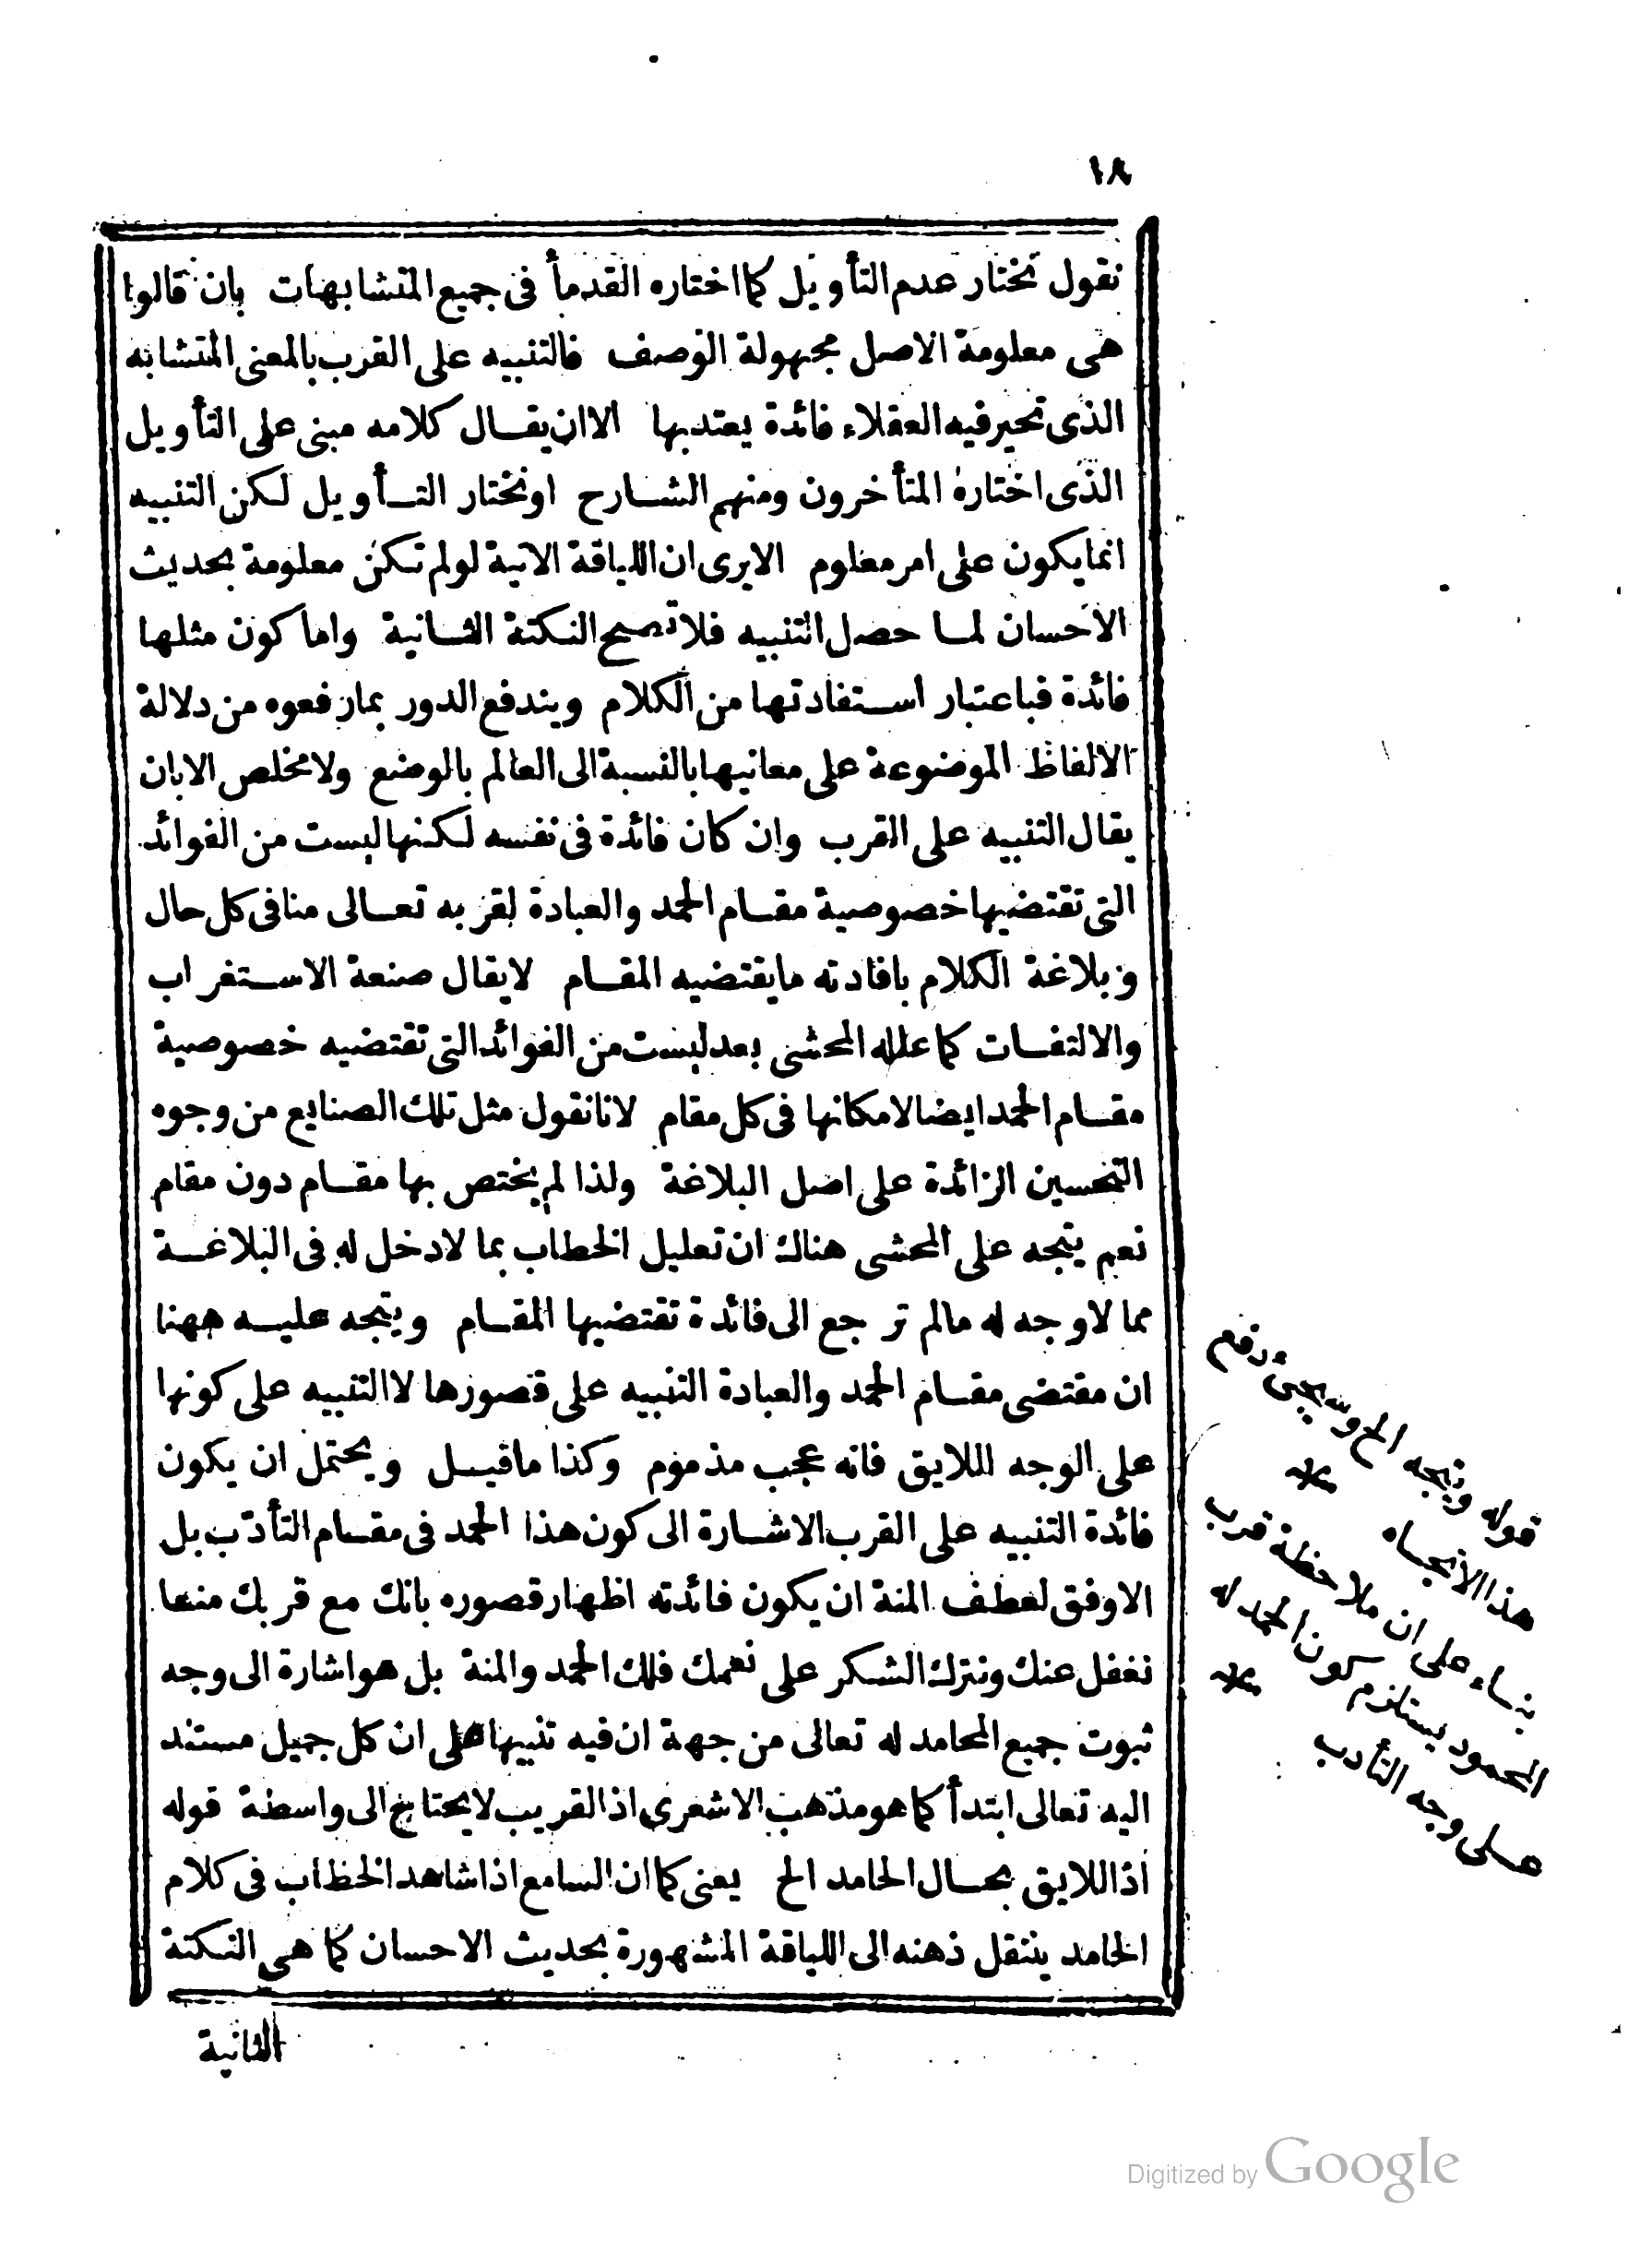 ١٨
نقول نختار عدم التأويل كما اختاره القدمأ فى جميع المتشابهات بان قالوا
هى معلومة الاصل مجهولة الوصف فالتنبيه على القرب بالمعنى المتشابه
الذى تحير فيه العقلاء فائدة يعتد بها الا ان يقال كلامه مبنى على التأويل
الذى اختاره المتأخرون ومنهم الشارح او نختار التأويل لكن التنبيه
انما يكون على امر معلوم الا يرى ان اللياقة الاتية لو لم تكن معلومة بحديث
الاحسان لما حصل التنبيه فلا تصح النكتة الثانية واما كون مثلها
فائدة فباعتبار استفادتها من الكلام ويندفع الدور بما رفعوه من دلالة
الالفاظ الموضوعة على معانيها بالنسبة الى العالم بالوضع ولا مخلص الا بان
يقال التنبيه على القرب وان كان فائدة فى نفسه لكنها ليست من الفوائد
التى تقتضيها خصوصية مقام الحمد والعبادة لقربه تعالى منا فى كل حال
وبلاغة الكلام بافادته ما يقتضيه المقام لا يقال صنعة الاستغراب
والالتفات كما علله المحشى بعد ليست من الفوائد التى تقتضيه خصوصية
مقام الحمد ايضا لامكانها فى كل مقام لانا نقول مثل تلك الصنايع من وجوه
التحسين الزائدة على اصل البلاغة ولذا لم يختص بها مقام دون مقام
نعم يتجه على المحشى هناك ان تعليل الخطاب بما لا دخل له فى البلاغة
مما لا وجه له مالم ترجع الى فائدة تقتضيها المقام ويتجه عليه ههنا
ان مقتضى مقام الحمد والعبادة التنبيه على قصورها لا التنبيه على كونها
على الوجه اللايق فانه عجب مذموم وكذا ما قيل ويحتمل ان يكون
فائدة التنبيه على القرب الاشارة الى كون هذا الحمد فى مقام التأدب بل
الاوفق لعطف المنة ان يكون فائدته اظهار قصوره بانك مع قربك منعا
نغفل عنك ونترك الشكر على نعمك فلك الحمد والمنة بل هو اشارة الى وجه
ثبوت جميع المحامد له تعالى من جهة ان فيه تنبيها على ان كل جميل مستند
اليه تعالى ابتدأ كما هو مذهب الاشعرى اذ القريب لا يحتاج الى واسطة قوله
اذ اللايق بحال الحامد الح يعنى كما ان السامع اذا شاهد الخطاب فى كلام
الحامد ينتقل ذهنه الى اللياقة المشهورة بحديث الاحسان كما هى النكتة
الثانية
قوله ويتجه الح وسيجئ دفع
هذا الاتجاه *
بناء على ان ملاحظة قرب
المحمود يستلزم كون الحمد له
على وجه التأدب *
Digitized by Google